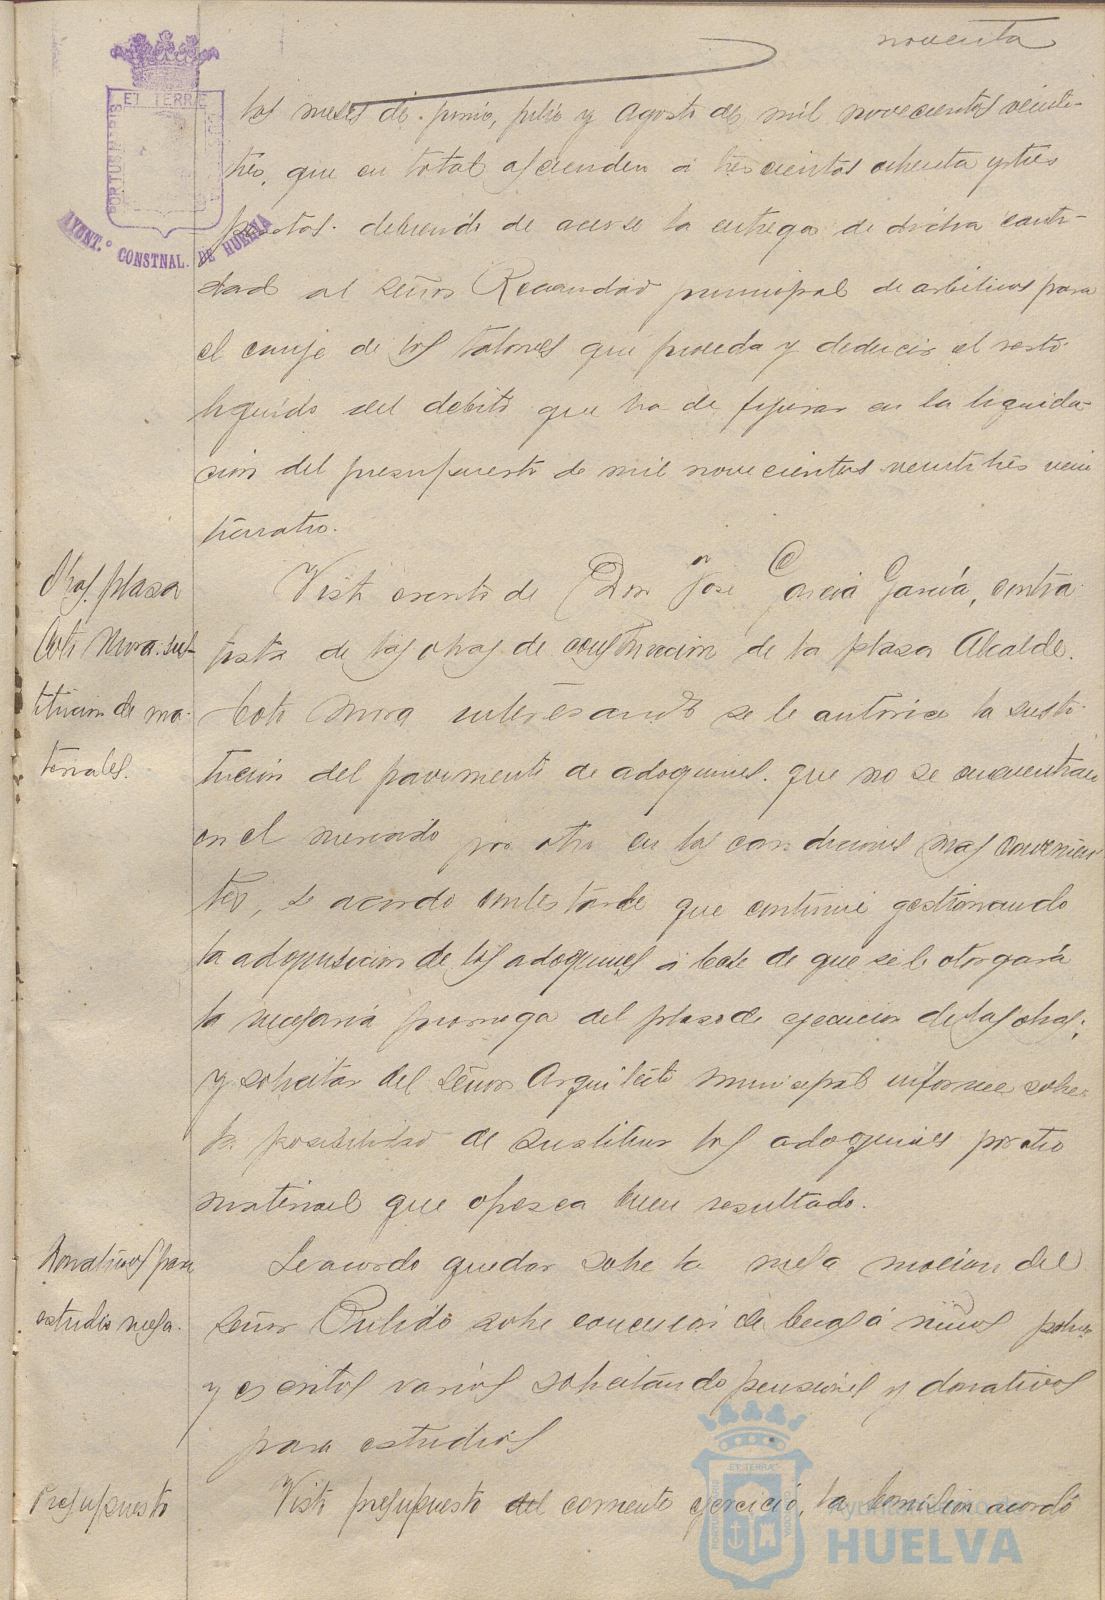 noventa
los meses de junio, julio y Agosto de mil novecientos veinti-
tres, que en total ascienden a trescientas ochenta y tres
pesetas. debiendo de acerse la entrega de dicha canti-
dad al señor Recaudador municipal de arbitrios para
el canje de los talones que proceda y deducir el resto
liquido del debito que ha de figurar en la liquida-
cion del presupuesto de mil novecientos veintitres vein
ticuatro.
Obras plasa
Coto Mora. sus-
titucion de ma-
teriales.
Visto escrito de Don José Garcia García, contra
tista de las obras de construccion de la plasa Alcalde.
Coto Mora interesando se le autorice la susti-
tución del pavimento de adoquines. que no se encuentran
en el mercado por otro en las condiciones mas convenien
tes, se acordo contestarle que continue gestionando
la adquisicion de los adoquines a base de que se le otorgará
la necesaria prorroga del plaso de ejecucion de las obras;
y solicitar del Señor Arquitecto municipal informe sobre
la posibilidad de sustituir los adoquines por otro
material que ofresca buen resultado.
Donativos para
estudio mesa.
Se acordo quedar sobre la mesa mocion del
señor Pulido sobre concesion de becas á niños pobres
y escritos varios solicitando pensiones y donativos
para estudios
Presupuesto
Visto presupuesto del corriente ejercicio, la Comision acordó
ET TERRÆ
AYUNT.º CONSTNAL. DE HUELVA
Ayuntamiento de
HUELVA